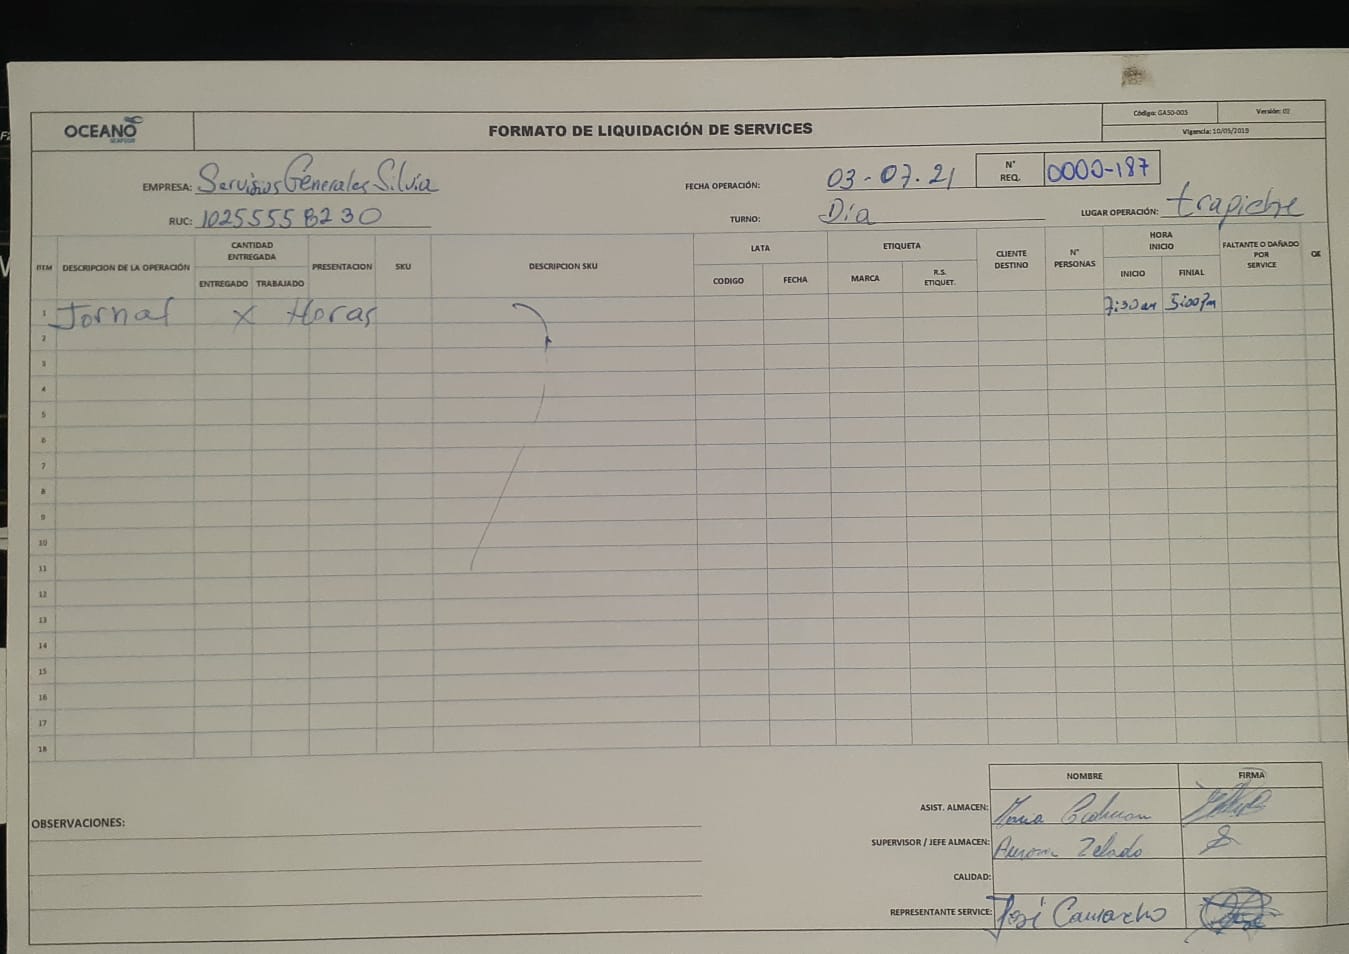 OCEANO
SEAFOOD
FORMATO DE LIQUIDACIÓN DE SERVICES
Código: GASO-005
Versión: 02
Vigencia: 10/05/2019
EMPRESA: Servisios Generales Silvia
FECHA OPERACIÓN: 03-07.21
N° REQ. 0000-187
RUC: 10255558230
TURNO: Día
LUGAR OPERACIÓN: trapiche
ITEM DESCRIPCION DE LA OPERACIÓN CANTIDAD ENTREGADA PRESENTACION SKU DESCRIPCION SKU LATA ETIQUETA CLIENTE DESTINO N° PERSONAS HORA INICIO FALTANTE O DAÑADO POR SERVICE
ENTREGADO TRABAJADO CODIGO FECHA MARCA R.S. ETIQUET. INICIO FINIAL
1 Jornal x Horas 7:30am 5:00Pm
2
3
4
5
6
7
8
9
10
11
12
13
14
15
16
17
18
NOMBRE FIRMA
OBSERVACIONES:
ASIST. ALMACEN: Maria
SUPERVISOR / JEFE ALMACEN: Aurora Zelado
CALIDAD:
REPRESENTANTE SERVICE: José Camacho